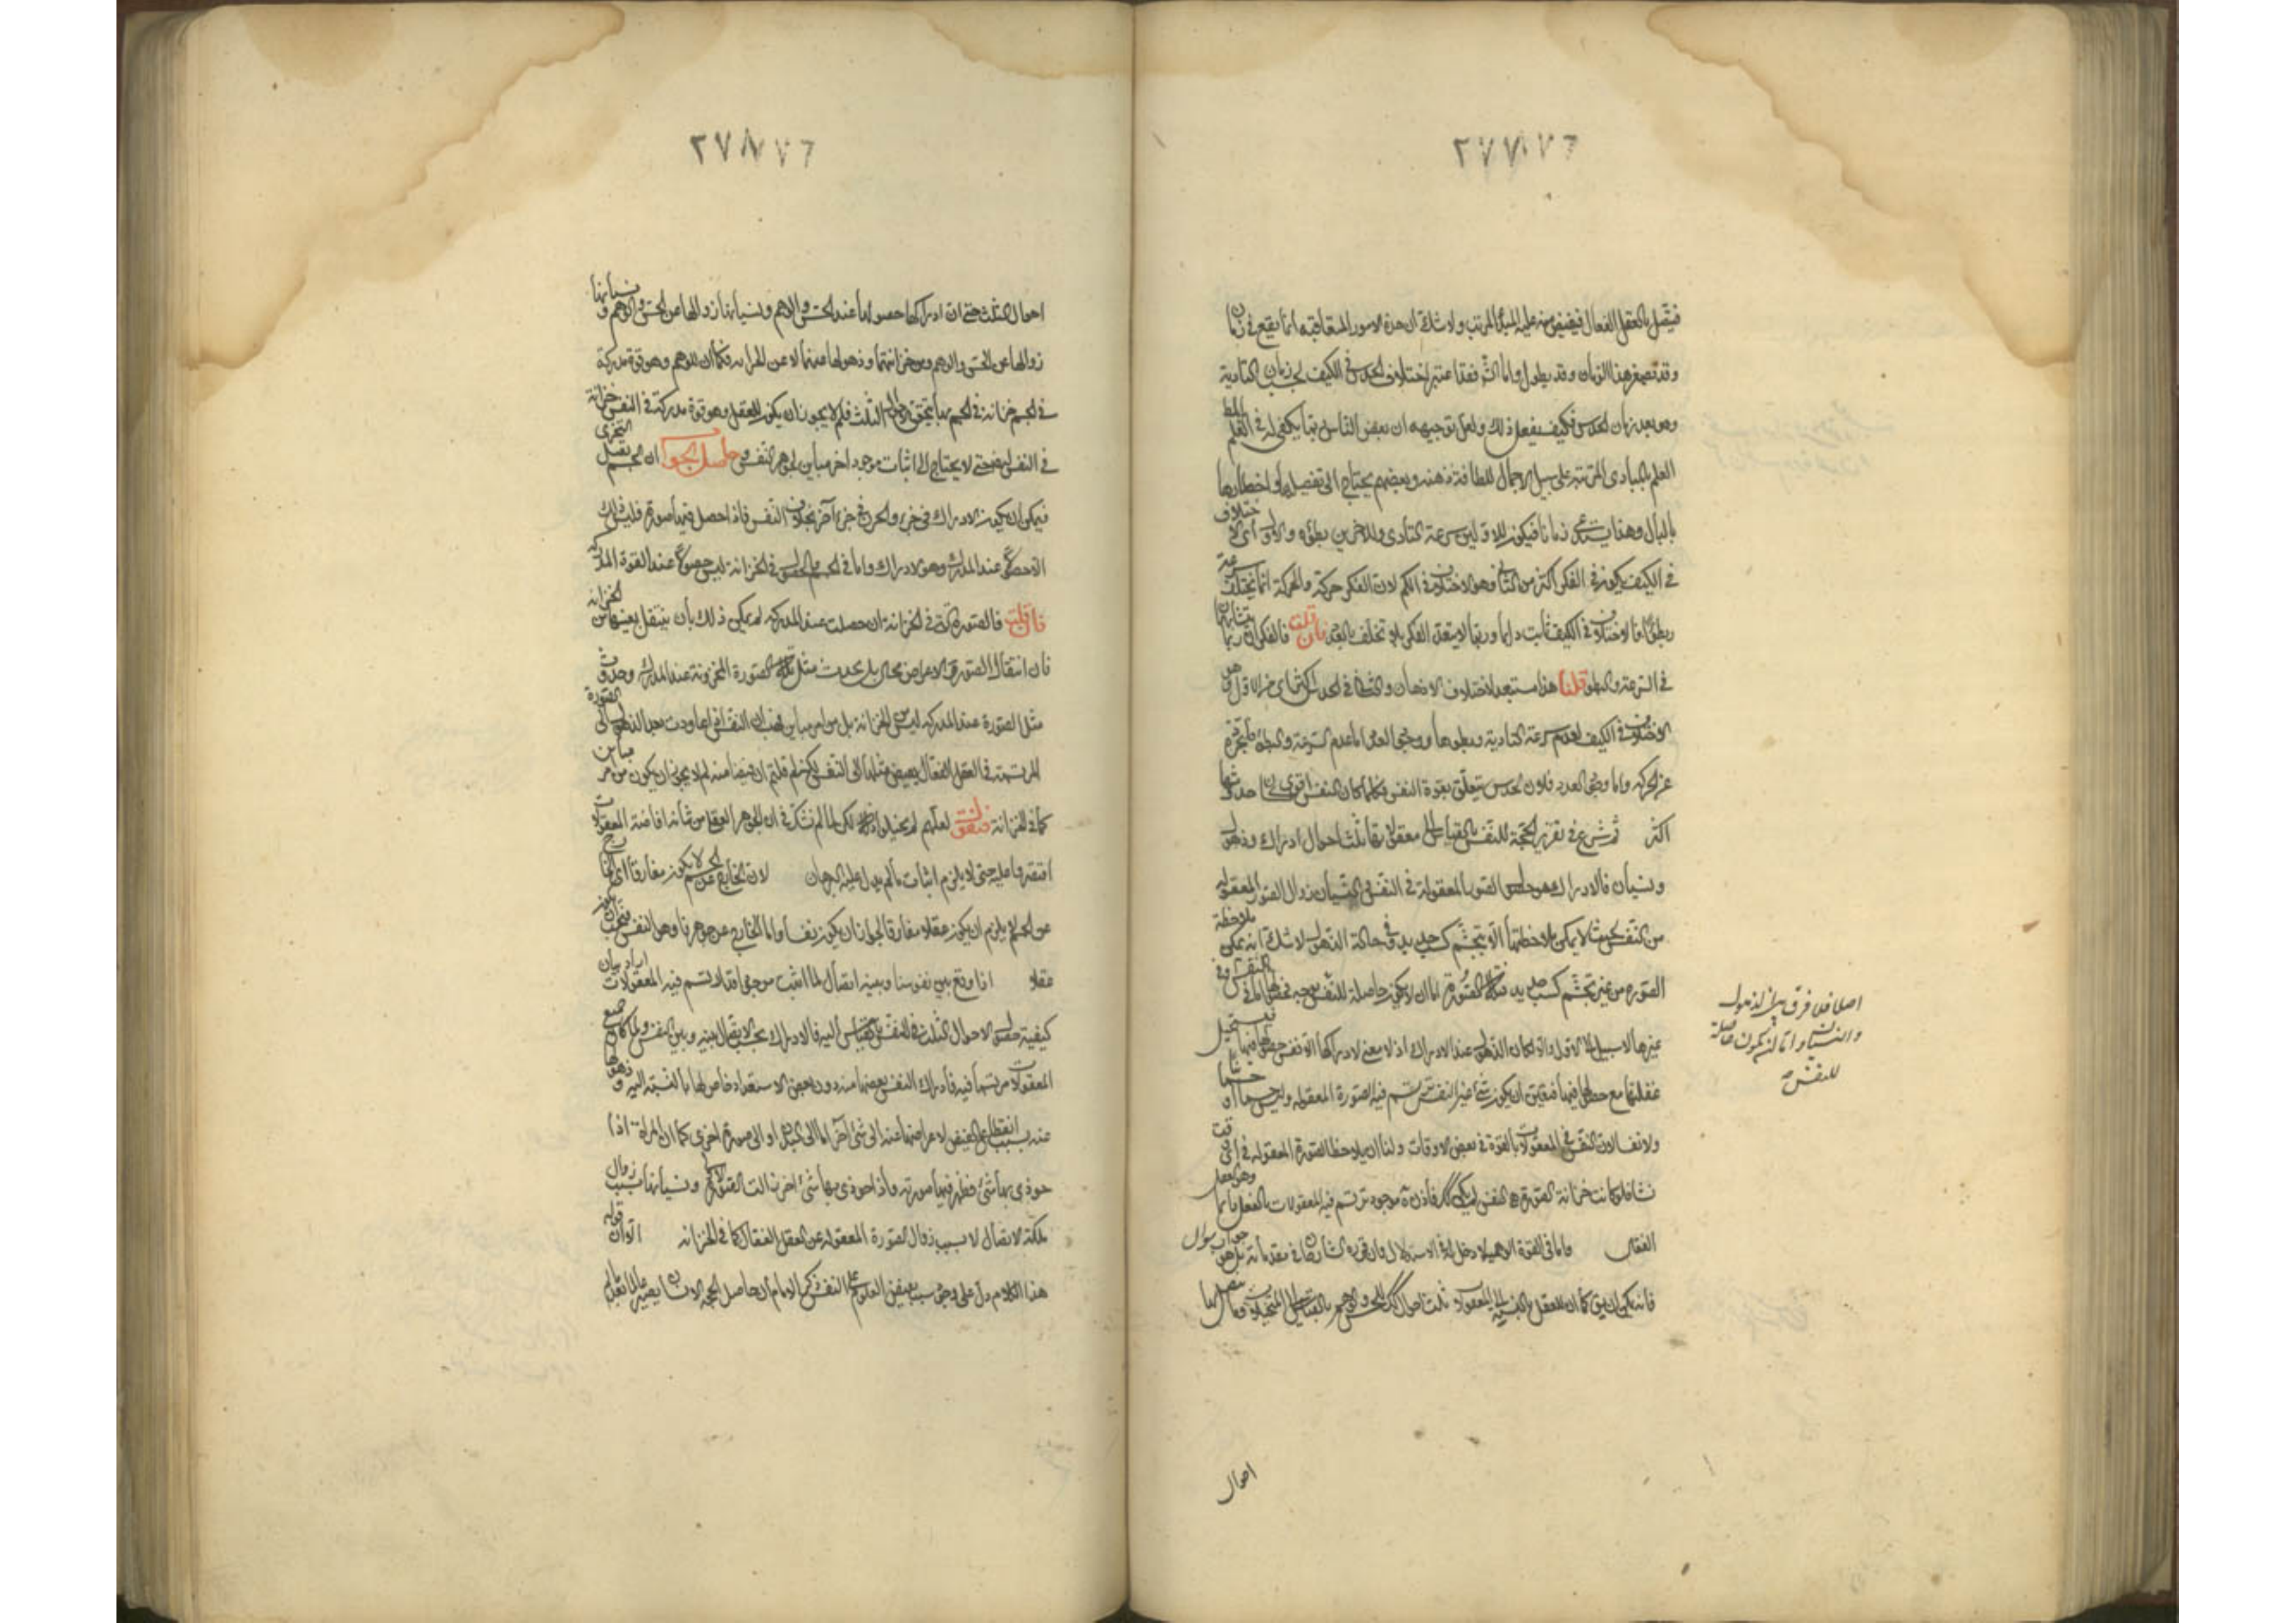 ٢٧٧
٢٧٦
فيتصل بالعقل الفعال فيفيض منه عليه المبدأ المرتب ولا شك ان هذه الامور المتعاقبة انما يقع في زمان
وقد تصغر هذا الزمان وقد يطول واما الشر فقد اعتبر اختلاف الحدس في الكيف بحسب زمان التادية
وهو بعد زمان الحدس فكيف يفعل ذلك ولعل توجيهه ان بعض الناس ربما يكفي له في العلم
العلم بالمبادى المرتبة على سبيل الاجمال للطافة ذهنه وبعضهم يحتاج الى تفصيلها واخطارها
بالبال وهذا يستدعي زمانا فيكون للاولين سرعة التأدى وللاخرين بطؤه والاول أى الاختلاف
في الكيف يكون في الفكر اكثر من الثاني وهو الاختلاف في الكم لان الفكر حركة والحركة انما يختلف سرعة
وبطؤا فالاختلاف في الكيف ثابت دائما وربما لا يتعدد الفكر فلا تختلف بالعدد فان قلت فالفكران ربما يتشابهان
في السرعة والبطؤ قلنا هذا مستبعد لاختلاف الاذهان والثانى في الحدس اكثر اى من الاول
الاختلاف في الكيف لعدم سرعة التادية وبطوها ووجود العدد اما عدم السرعة والبطؤ
عن الحركة واما وجود العدد فلان الحدس يتعلق بقوة النفس فكلما كان النفس اقوى كان حدسها
اكثر ثم شرع في تقرير الحجة للنفس بالقياس الى معقولاتها ثلث احوال ادراك وذهول
ونسيان فالادراك هو حصول الصورة المعقولة في النفس والنسيان زوال الصورة المعقولة
من النفس بحيث لا يمكن ملاحظتها الا بتجشم كسب جديد وفي حالة الذهول لا شك انه يمكن ملاحظة
الصورة من غير تجشم كسب جديد فتلك الصورة اما ان لا يكون حاصلة للنفس
غيرها لا سبيل الى الاول والا لكان الذهول عند الادراك اذ لا معنى لادراكها الا نفس حصولها فيها فيستحيل
غفلتها مع حصولها فيها فتعين ان يكون شئ غير النفس ترتسم فيه الصورة المعقولة وليس جسما او جسمانيا
ولا نفسا لان النفس في المعقولات بالقوة في بعض الاوقات ولنا ان يلاحظ الصورة المعقولة في اى وقت
نشاء فلو كانت خزانة الصورة هى النفس لم يكن كذلك فاذن موجود ترتسم فيه المعقولات بالفعل دائما وهو العقل
الفعال واما في القوة الوهمية لا دخل له في الاستدلال جواب سوال
فانه يمكن ان يق كما ان للعقل بالنسبة الى المعقولات ثلث احوال كذلك للحس والوهم بالقياس الى المتخيلات وما يتصل بها
اصلا فلا فرق بين الذهول
والنسيان واما ان تكون حاصلة
للنفس
احوال
٢٧٨
٢٧٦
احوال الثلث حتى ان ادراكها حصولها عند الحس والوهم ونسيانها زوالها عن الحس والوهم ونسيانها
زوالها عن الحس والوهم وعن خزانتهما وذهولها عنهما لا عن الخزانة فكما ان للوهم وهو قوة مدركة
في الجسم خزانة في الجسم بها يتحقق احوال الثلث فلم لا يجوز ان يكون للعقل وهو قوة مدركة في النفس خزانة
في النفس ايضا حتى لا يحتاج الى اثبات موجود اخر مباين لجوهر النفس وحاصل الجواب ان الجسم يقبل التجزى
فيمكن ان يكون الادراك في جزء والخزن في جزء آخر بخلاف النفس فاذا حصل فيها صورة فليس ذلك
الا حصولا عند المدرك وهو الادراك واما في الجسم فالحصول في الخزانة ليس حصولا عند القوة المدركة
فان قلت فالصورة في الخزانة ان حصلت عند المدركة لم يكن ذلك بان ينتقل بعينها من الخزانة
فان انتقال الصورة والاعراض محال بل بحدوث مثل تلك الصورة المخزونة عند المدرك وحدوث
مثل الصورة عند المدركة ليس من الخزانة بل من امر مباين فهب ان النفس اذا عاودت بعد الذهول الى الصورة
المرتسمة في العقل الفعال يفيض مثلها الى النفس لكن لم قلتم ان فيضا منه لم لا يجوز ان يكون من امر مباين
كما في الخزانة فنقول لعلهم لم يتخيلوا ذلك لكن لما لم نشك في ان الجوهر العقلي من شأنه افاضة المعقولات
اقتصروا عليه حتى لا يلزم اثبات ما لم يدل عليه البرهان لان الخارج عن الجسم لا يكون مفارقا
عن الجسم لا يلزم ان يكون عقلا مفارقا لجواز ان يكون نفسا واما الخارج عن جوهرنا وهو النفس فيجب ان يكون
عقلا اذا وقع بين نفوسنا وبينه اتصال لما اثبت موجودا قد ارتسم فيه المعقولات اراد بيان
كيفية حصول الاحوال الثلث للنفس بالقياس اليه فالادراك بحسب الاتصال بينه وبين النفس ولما كان جميع
المعقولات مرتسما فيه فادراك النفس بعضها منه دون بعض لاستعداد خاص لها بالنسبة اليه وذهولها
عنه بسبب انقطاع الفيض لاعراضها عنه الى شئ آخر اما الى البدن او الى صورة اخرى كما ان المرآة اذا
حوذى بها شئ فظهر فيها صورته واذا حوذى بها شئ آخر زالت الصورة الاولى ونسيانها بسبب زوال
ملكة الاتصال لا بسبب زوال الصورة المعقولة عن العقل الفعال كما في الخزانة قوله الا ان
هذا الكلام دل على وجود سبب يفيض العلوم على النفس ذكر الامام ان حاصل الحجة ان الانسان يصير عالما بعد ما لم